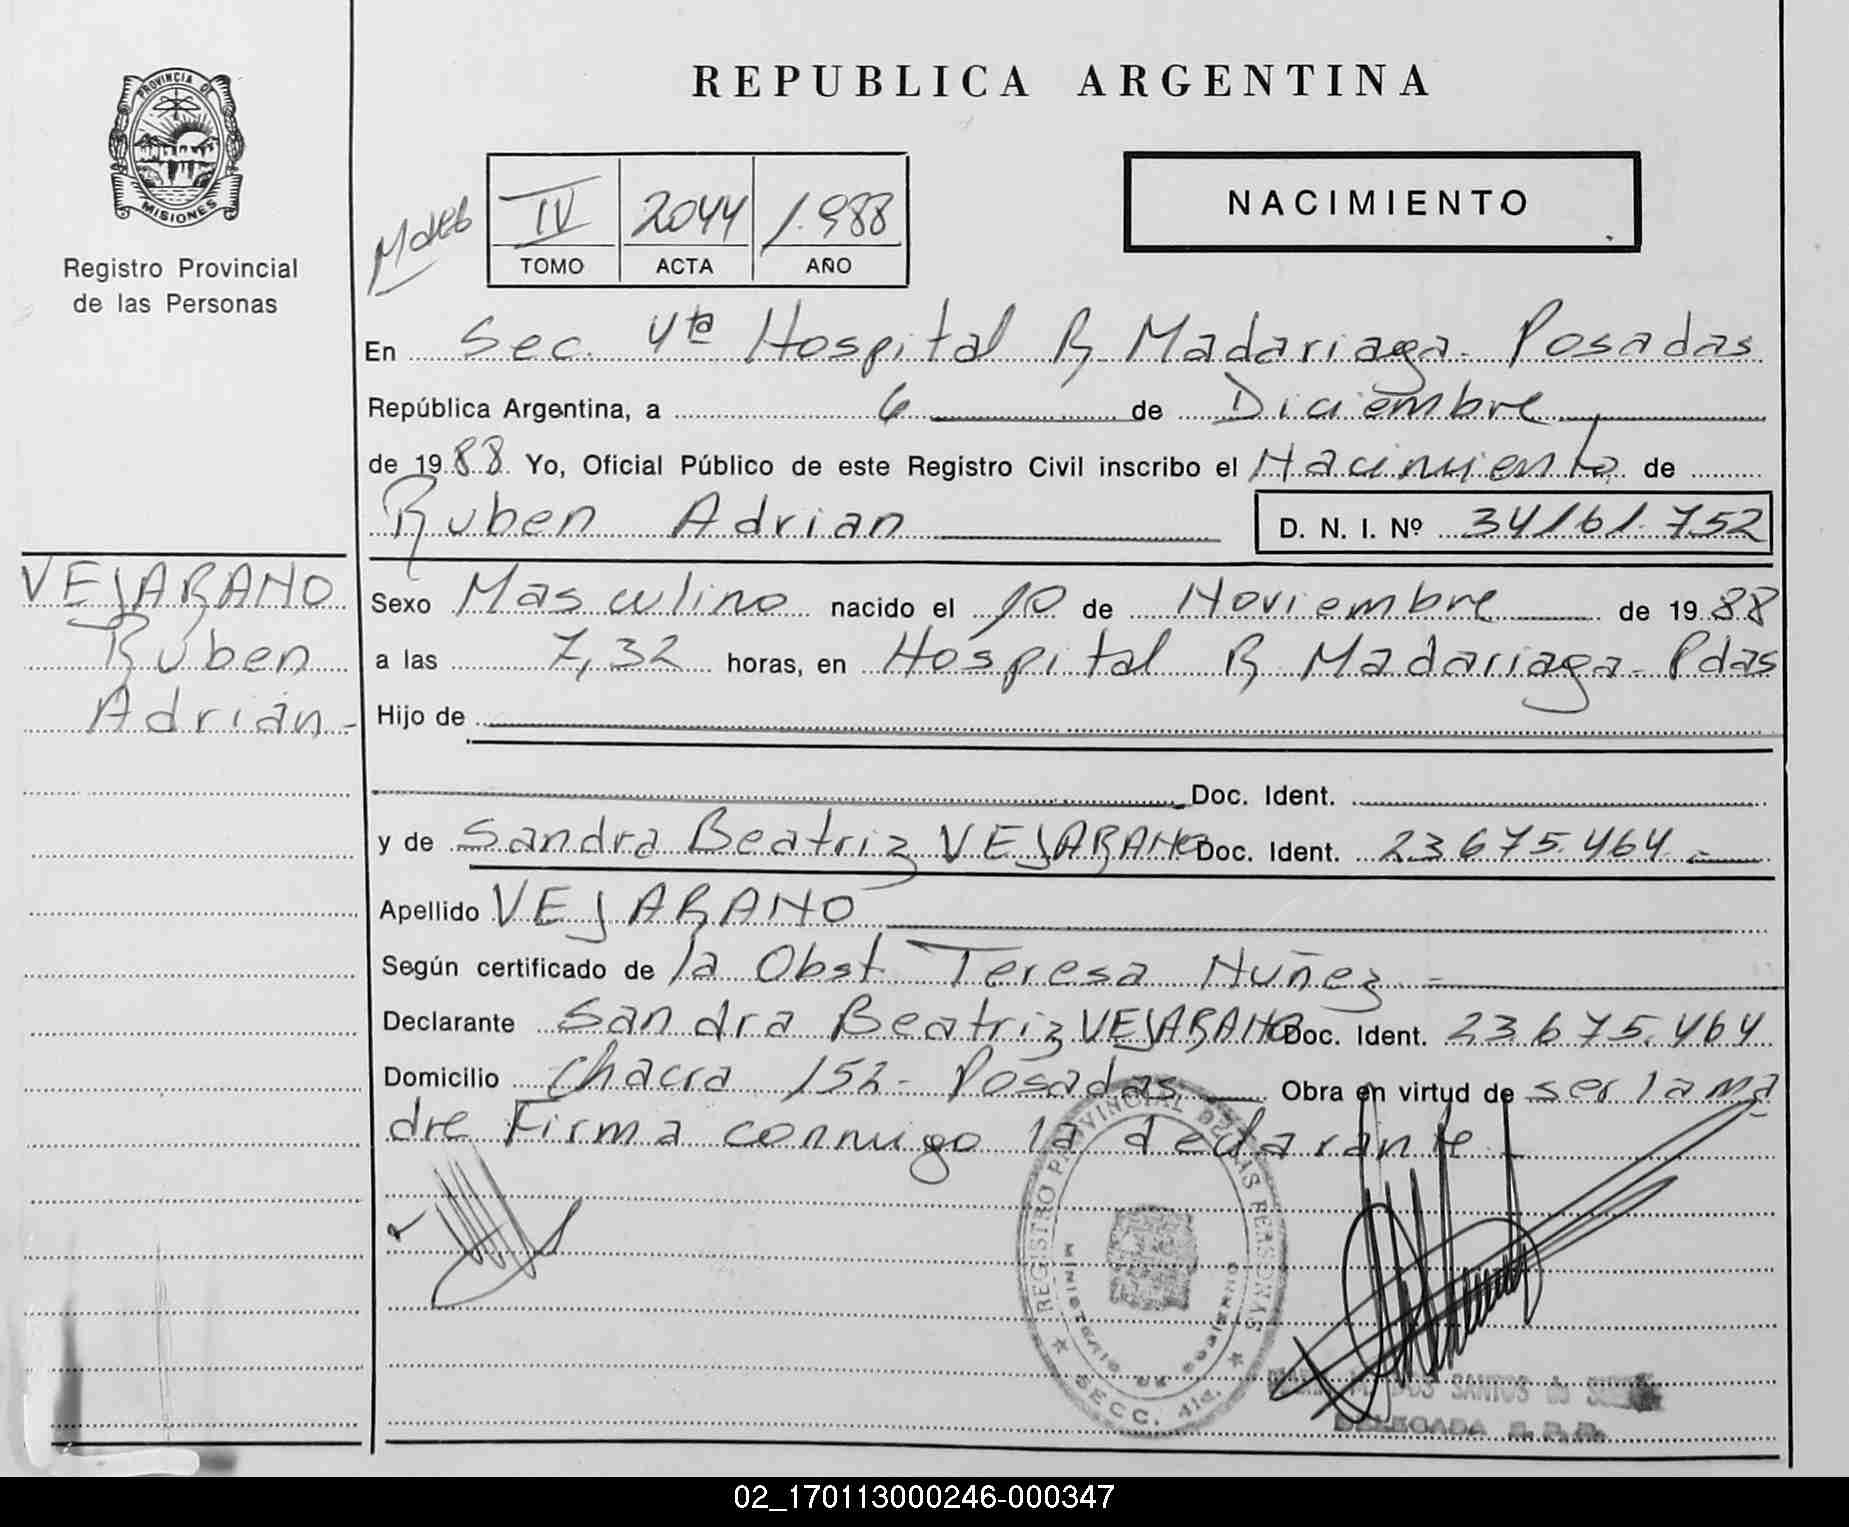 REPUBLICA ARGENTINA
PROVINCIA DE
MISIONES
Registro Provincial
de las Personas
NACIMIENTO
IV 2044 1.988
TOMO ACTA AÑO
En Sec. 4ta Hospital R Madariaga - Posadas
República Argentina, a 6 de Diciembre
de 1988 Yo, Oficial Público de este Registro Civil inscribo el Nacimiento de
Ruben Adrian D. N. I. Nº 34161.752
VEJARANO
Ruben
Adrián.-
Sexo Masculino nacido el 10 de Noviembre de 1988
a las 7,32 horas, en Hospital R Madariaga - Pdas
Hijo de
Doc. Ident.
y de Sandra Beatriz VEJARANO Doc. Ident. 23.675.464.-
Apellido VEJARANO
Según certificado de la Obst. Teresa Nuñez -
Declarante Sandra Beatriz VEJARANO Doc. Ident. 23.675.464
Domicilio Chacra 152 - Posadas Obra en virtud de ser la ma
dre Firma conmigo la declarante -
REGISTRO PROVINCIAL DE LAS PERSONAS
MINISTERIO DE GOBIERNO
SECC. 4ta.
DOS SANTOS de
DELEGADA
02_170113000246-000347